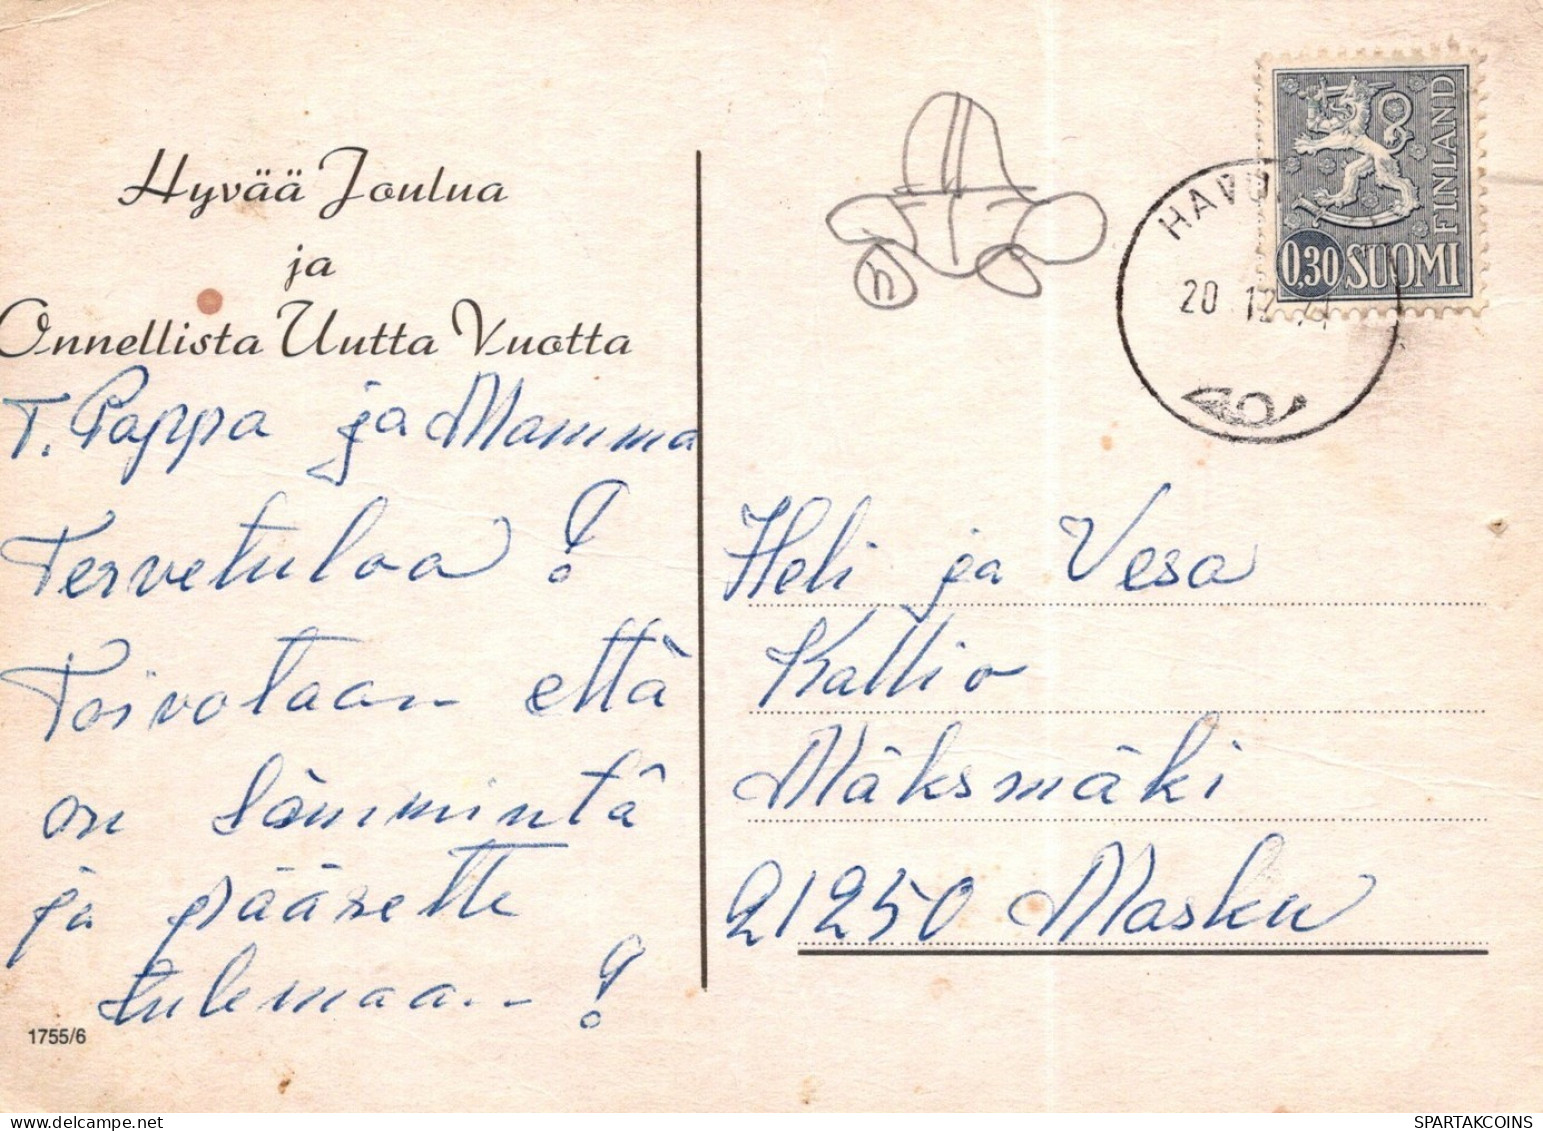 Hyvää Joulua
ja
Onnellista Uutta Vuotta
T. Pappa ja Mamma
Tervetuloa!
Toivotaan että
on lämmintä
ja pääsette
tulemaan!
1755/6
FINLAND
0,30 SUOMI
20.12.
Heli ja Vesa
Kallio
Mäksmäki
21250 Masku
SPARTAKCOINS